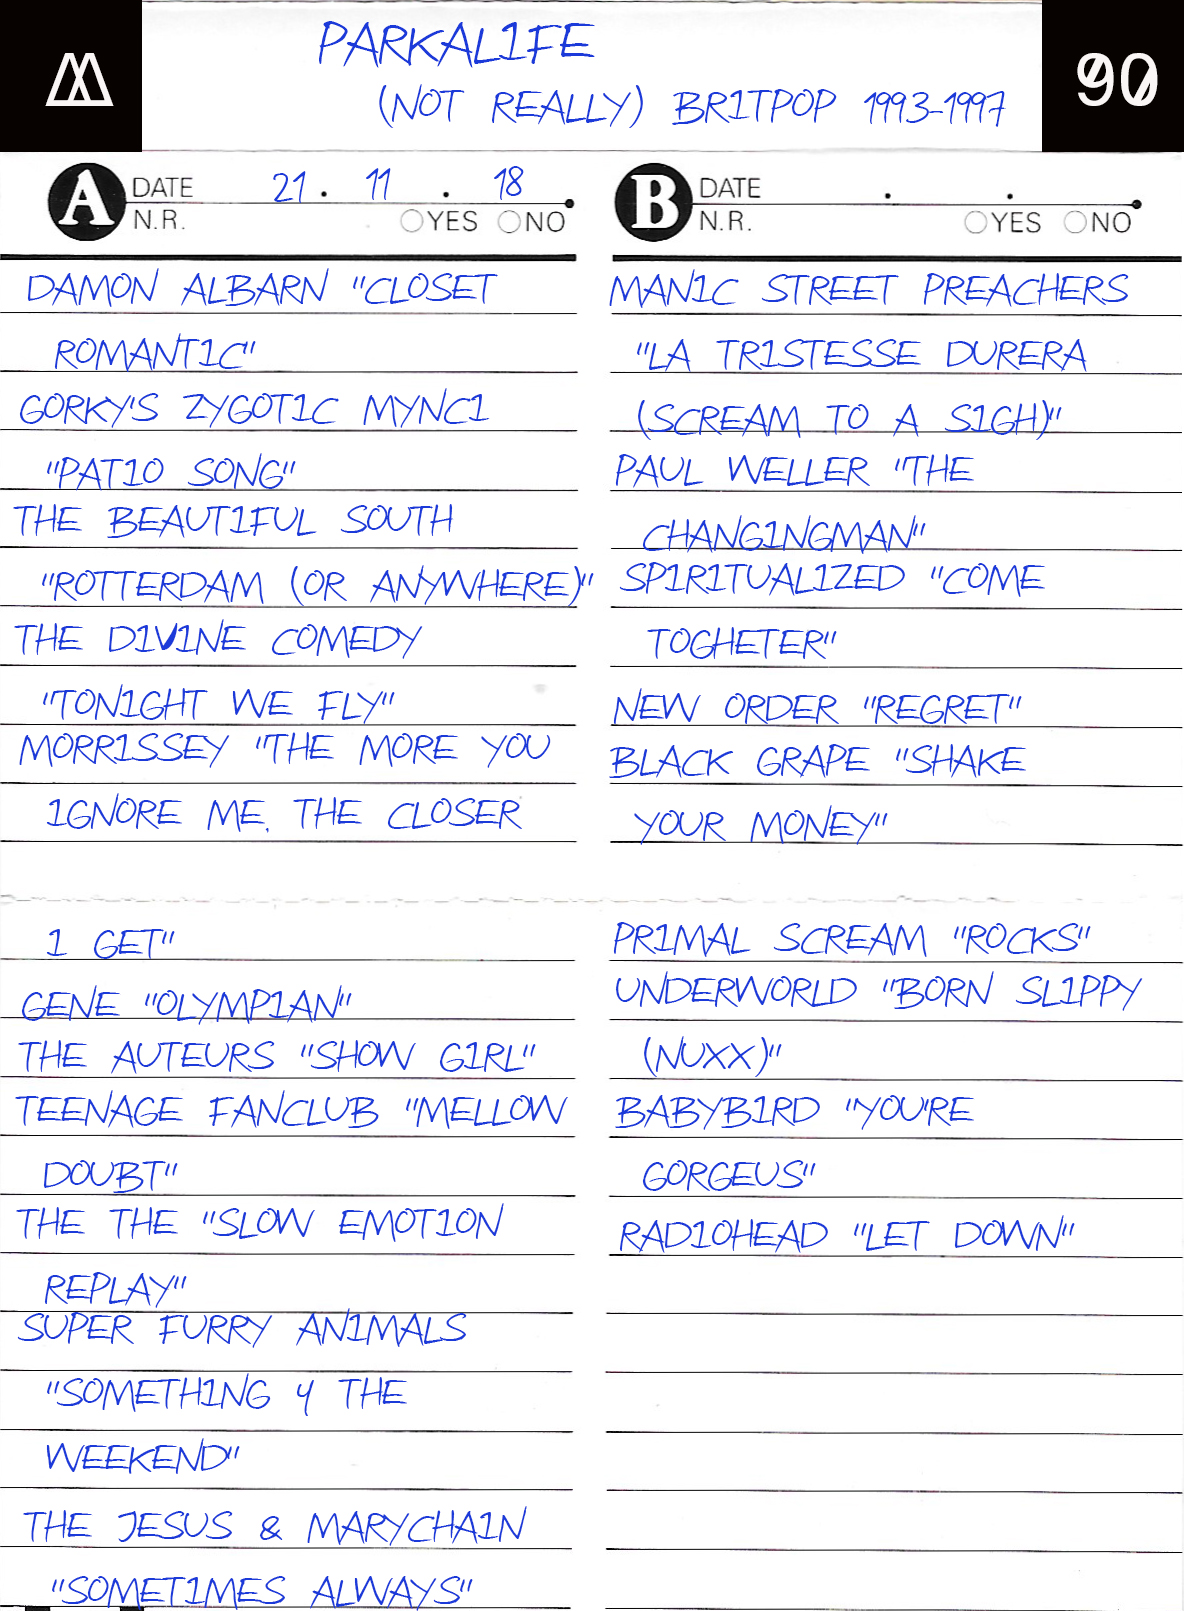 PARKAL1FE
(NOT REALLY) BR1TPOP 1993-1997
90
A DATE 21. 11. 18
N.R. YES NO
DAMON ALBARN "CLOSET
ROMANT1C"
GORKY'S ZYGOT1C MYNC1
"PAT1O SONG"
THE BEAUT1FUL SOUTH
"ROTTERDAM (OR ANYWHERE)"
THE D1V1NE COMEDY
"TON1GHT WE FLY"
MORR1SSEY "THE MORE YOU
1GNORE ME, THE CLOSER
1 GET"
GENE "OLYMP1AN"
THE AUTEURS "SHOW G1RL"
TEENAGE FANCLUB "MELLOW
DOUBT"
THE THE "SLOW EMOT1ON
REPLAY"
SUPER FURRY AN1MALS
"SOMETH1NG 4 THE
WEEKEND"
THE JESUS & MARYCHA1N
"SOMET1MES ALWAYS"
B DATE . .
N.R. YES NO
MAN1C STREET PREACHERS
"LA TR1STESSE DURERA
(SCREAM TO A S1GH)"
PAUL WELLER "THE
CHANG1NGMAN"
SP1R1TUAL1ZED "COME
TOGHETER"
NEW ORDER "REGRET"
BLACK GRAPE "SHAKE
YOUR MONEY"
PR1MAL SCREAM "ROCKS"
UNDERWORLD "BORN SL1PPY
(NUXX)"
BABYB1RD "YOU'RE
GORGEUS"
RAD1OHEAD "LET DOWN"